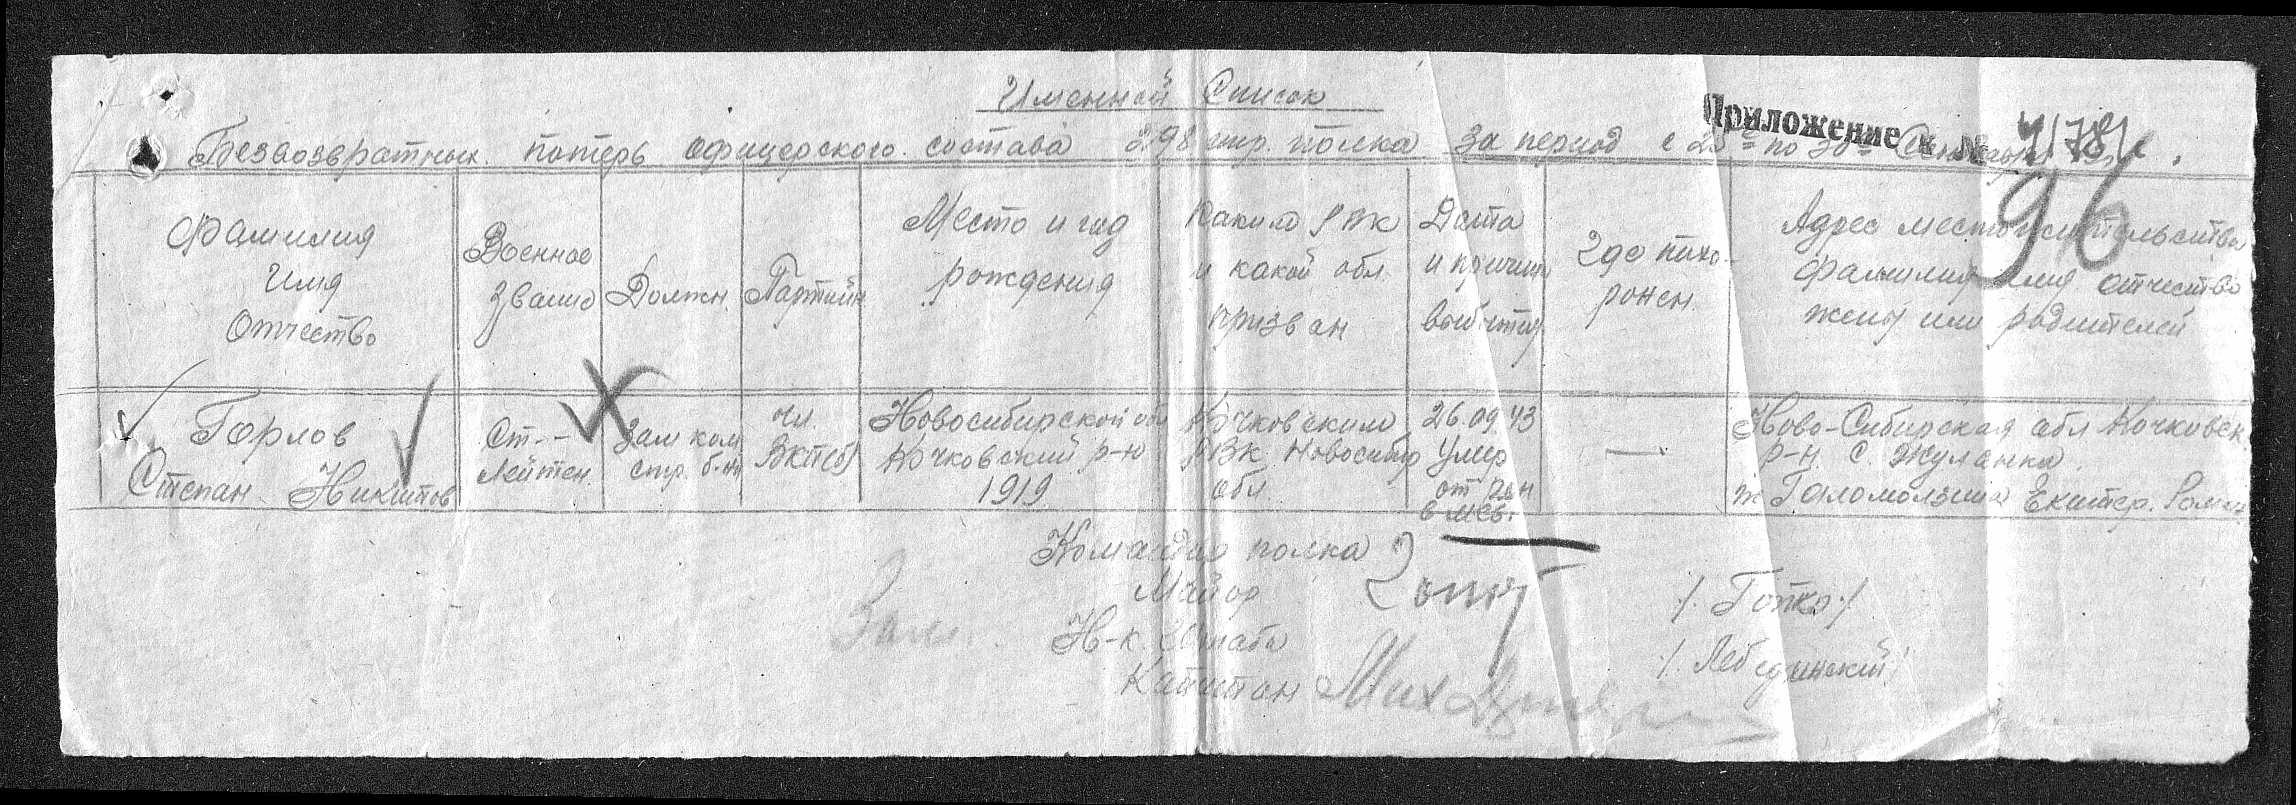 Именной Список
Приложение к №
Безвозвратных потерь офицерского состава 298 стр. полка за период с 20 по 30
96
Фамилия
Имя
Отчество
Военное
звание
Должн.
Партийн
Место и год
рождения
Каким РВК
и какой обл.
призван
Дата
и причина
выбытия
Где похо-
ронен
Адрес местожительства
фамилия имя отчество
жены или родителей
Горлов
Степан Никитов
Ст.-
лейтен.
Зам ком
стр. б-на
чл.
ВКП(б)
Новосибирской обл
Кочковский р-н
1919
Кочковским
РВК Новосибир
обл.
26.09.43
Умер
от ран
в мсб.
—
Ново-Сибирская обл Кочковск
р-н. с. Жуланка.
ж Екатер. Роман
Командир полка
Майор
/. Готко /
Зам.
Н-к Штаба
Капитан
/. Лебединский /